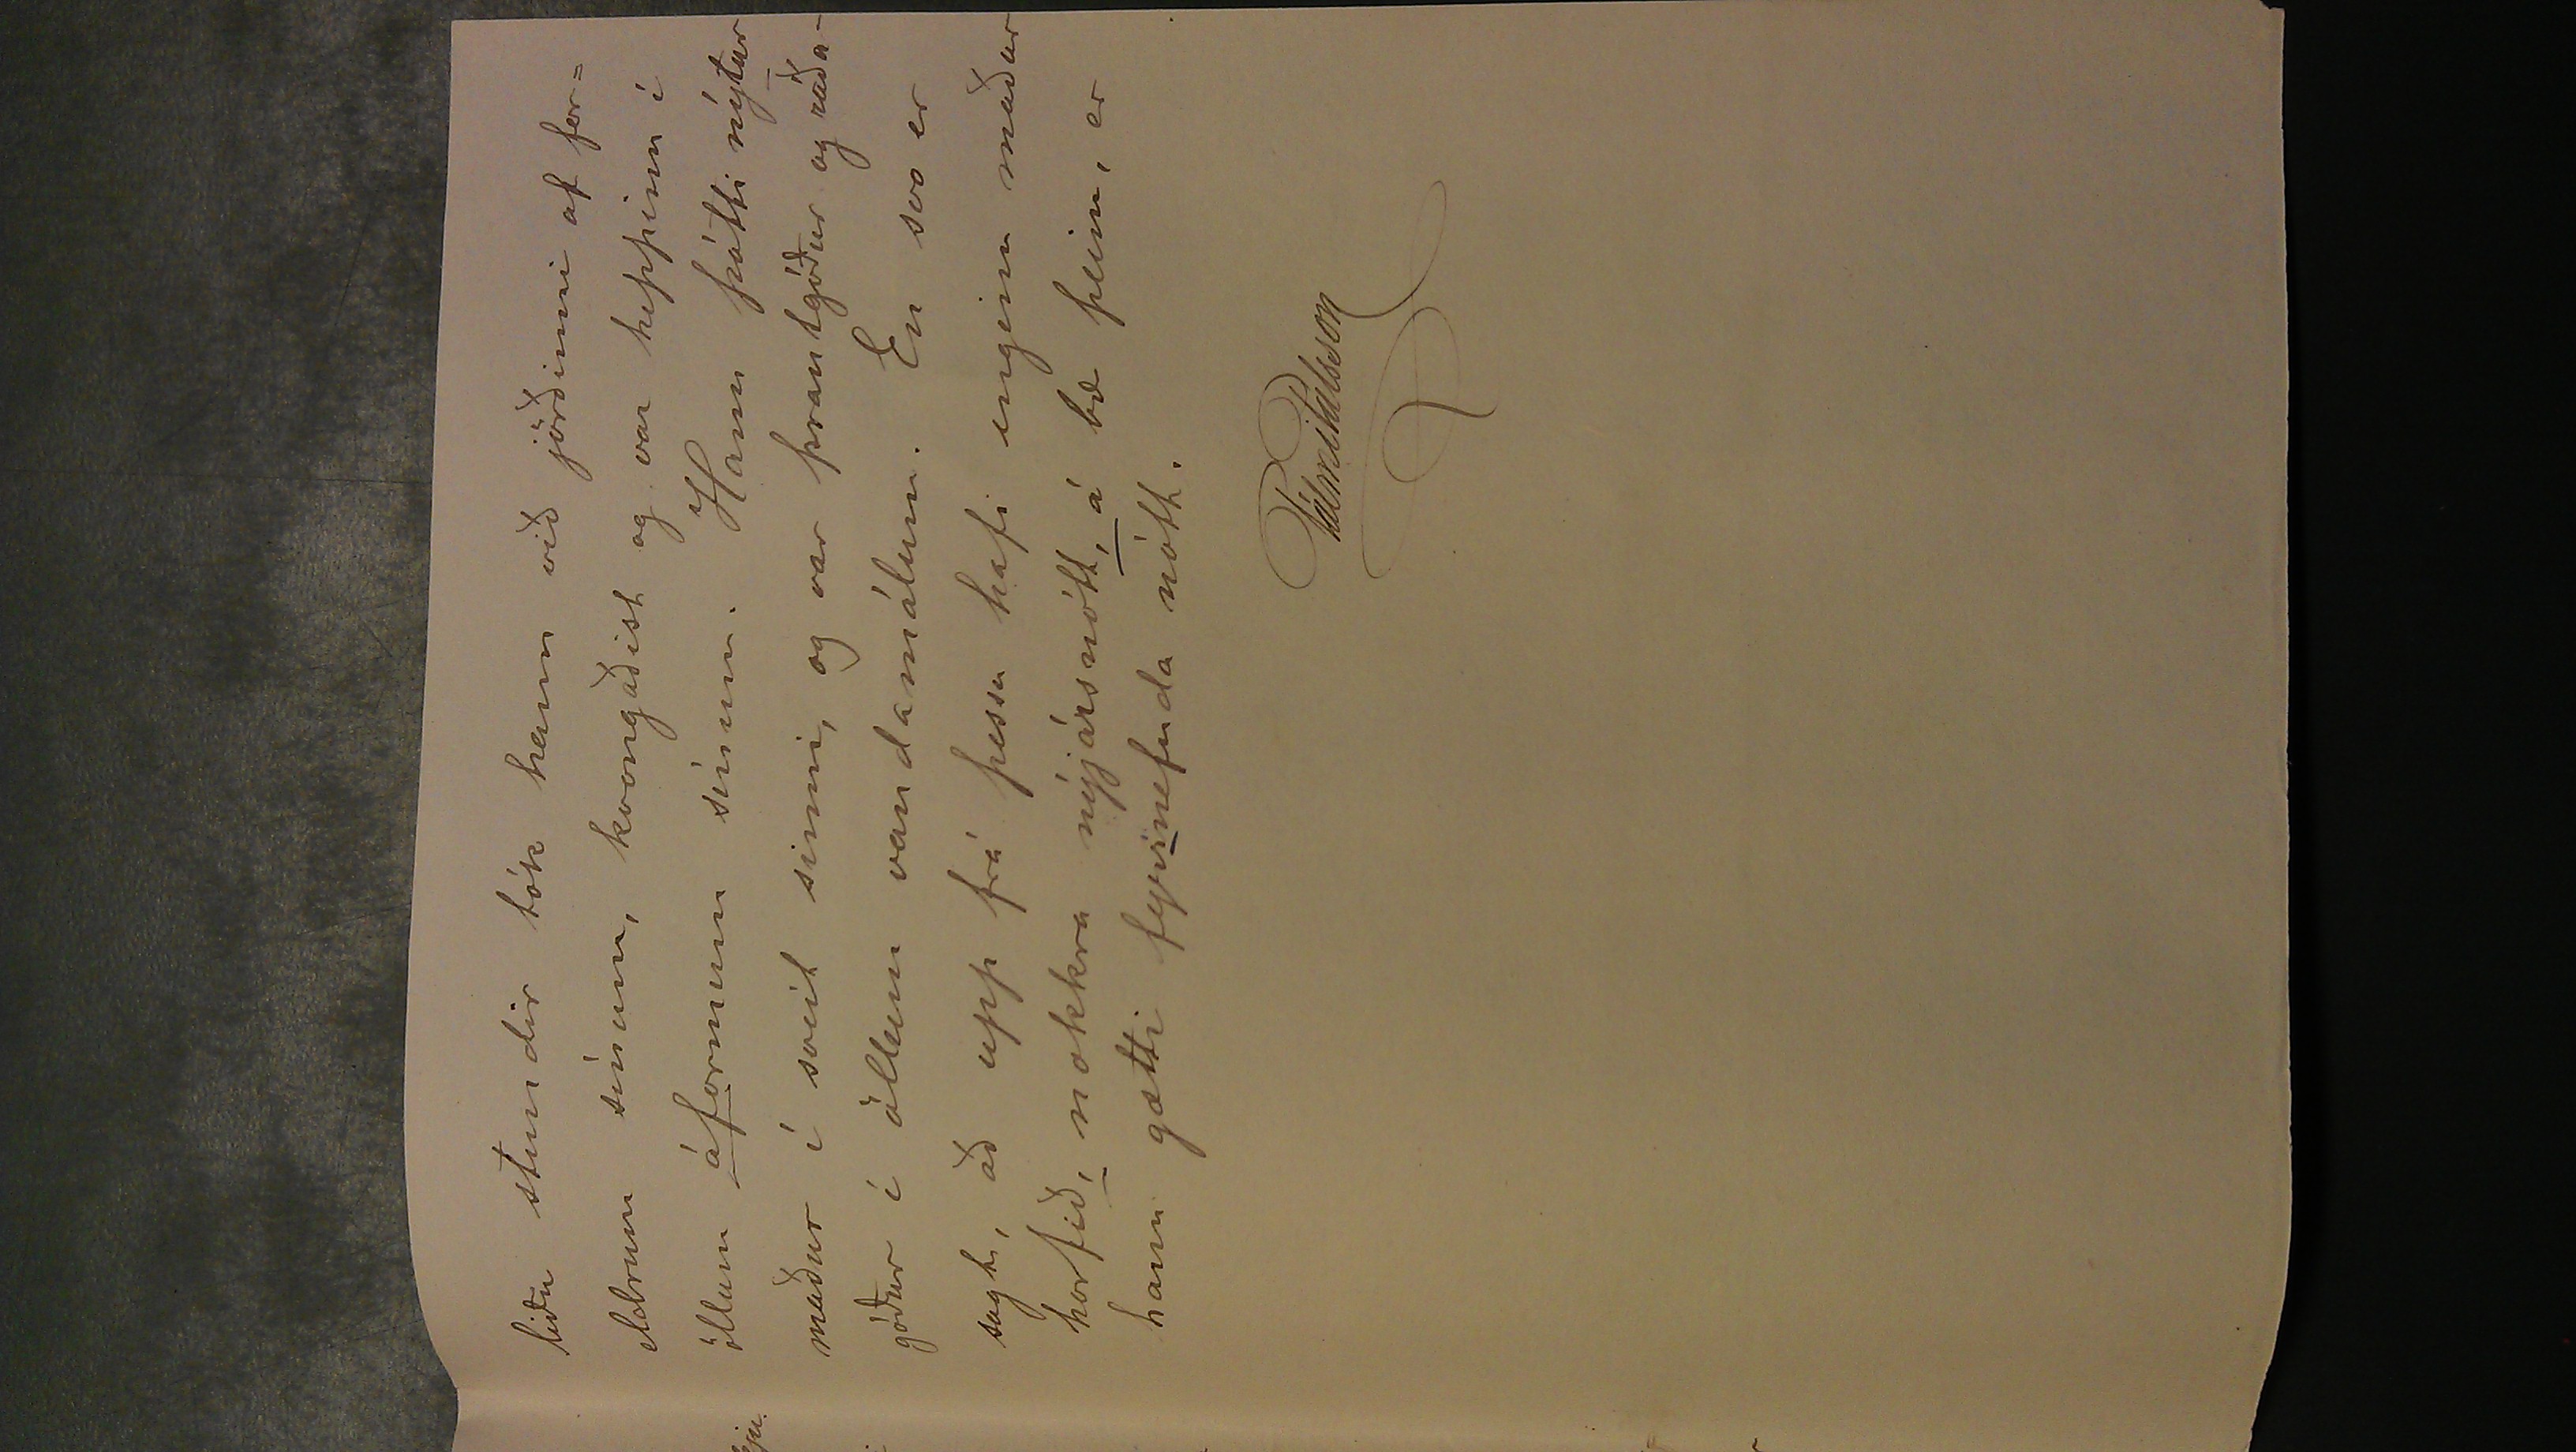 liðu stundir tók hann við jörðinni af for=
eldrum sínum, kvongaðist og var heppinn í
öllum áformum sínum. Hann þótti nýtur
maður í sveit sinni, og var þrautgóður og ráða-
góður í öllum vandamálum. En svo er
sagt, að upp frá þessu hafi enginn maður
horfið, nokkra nýjársnótt, á bæ þeim, er
hann gætti fyrirnefnda nótt.
Pálmi Pálsson